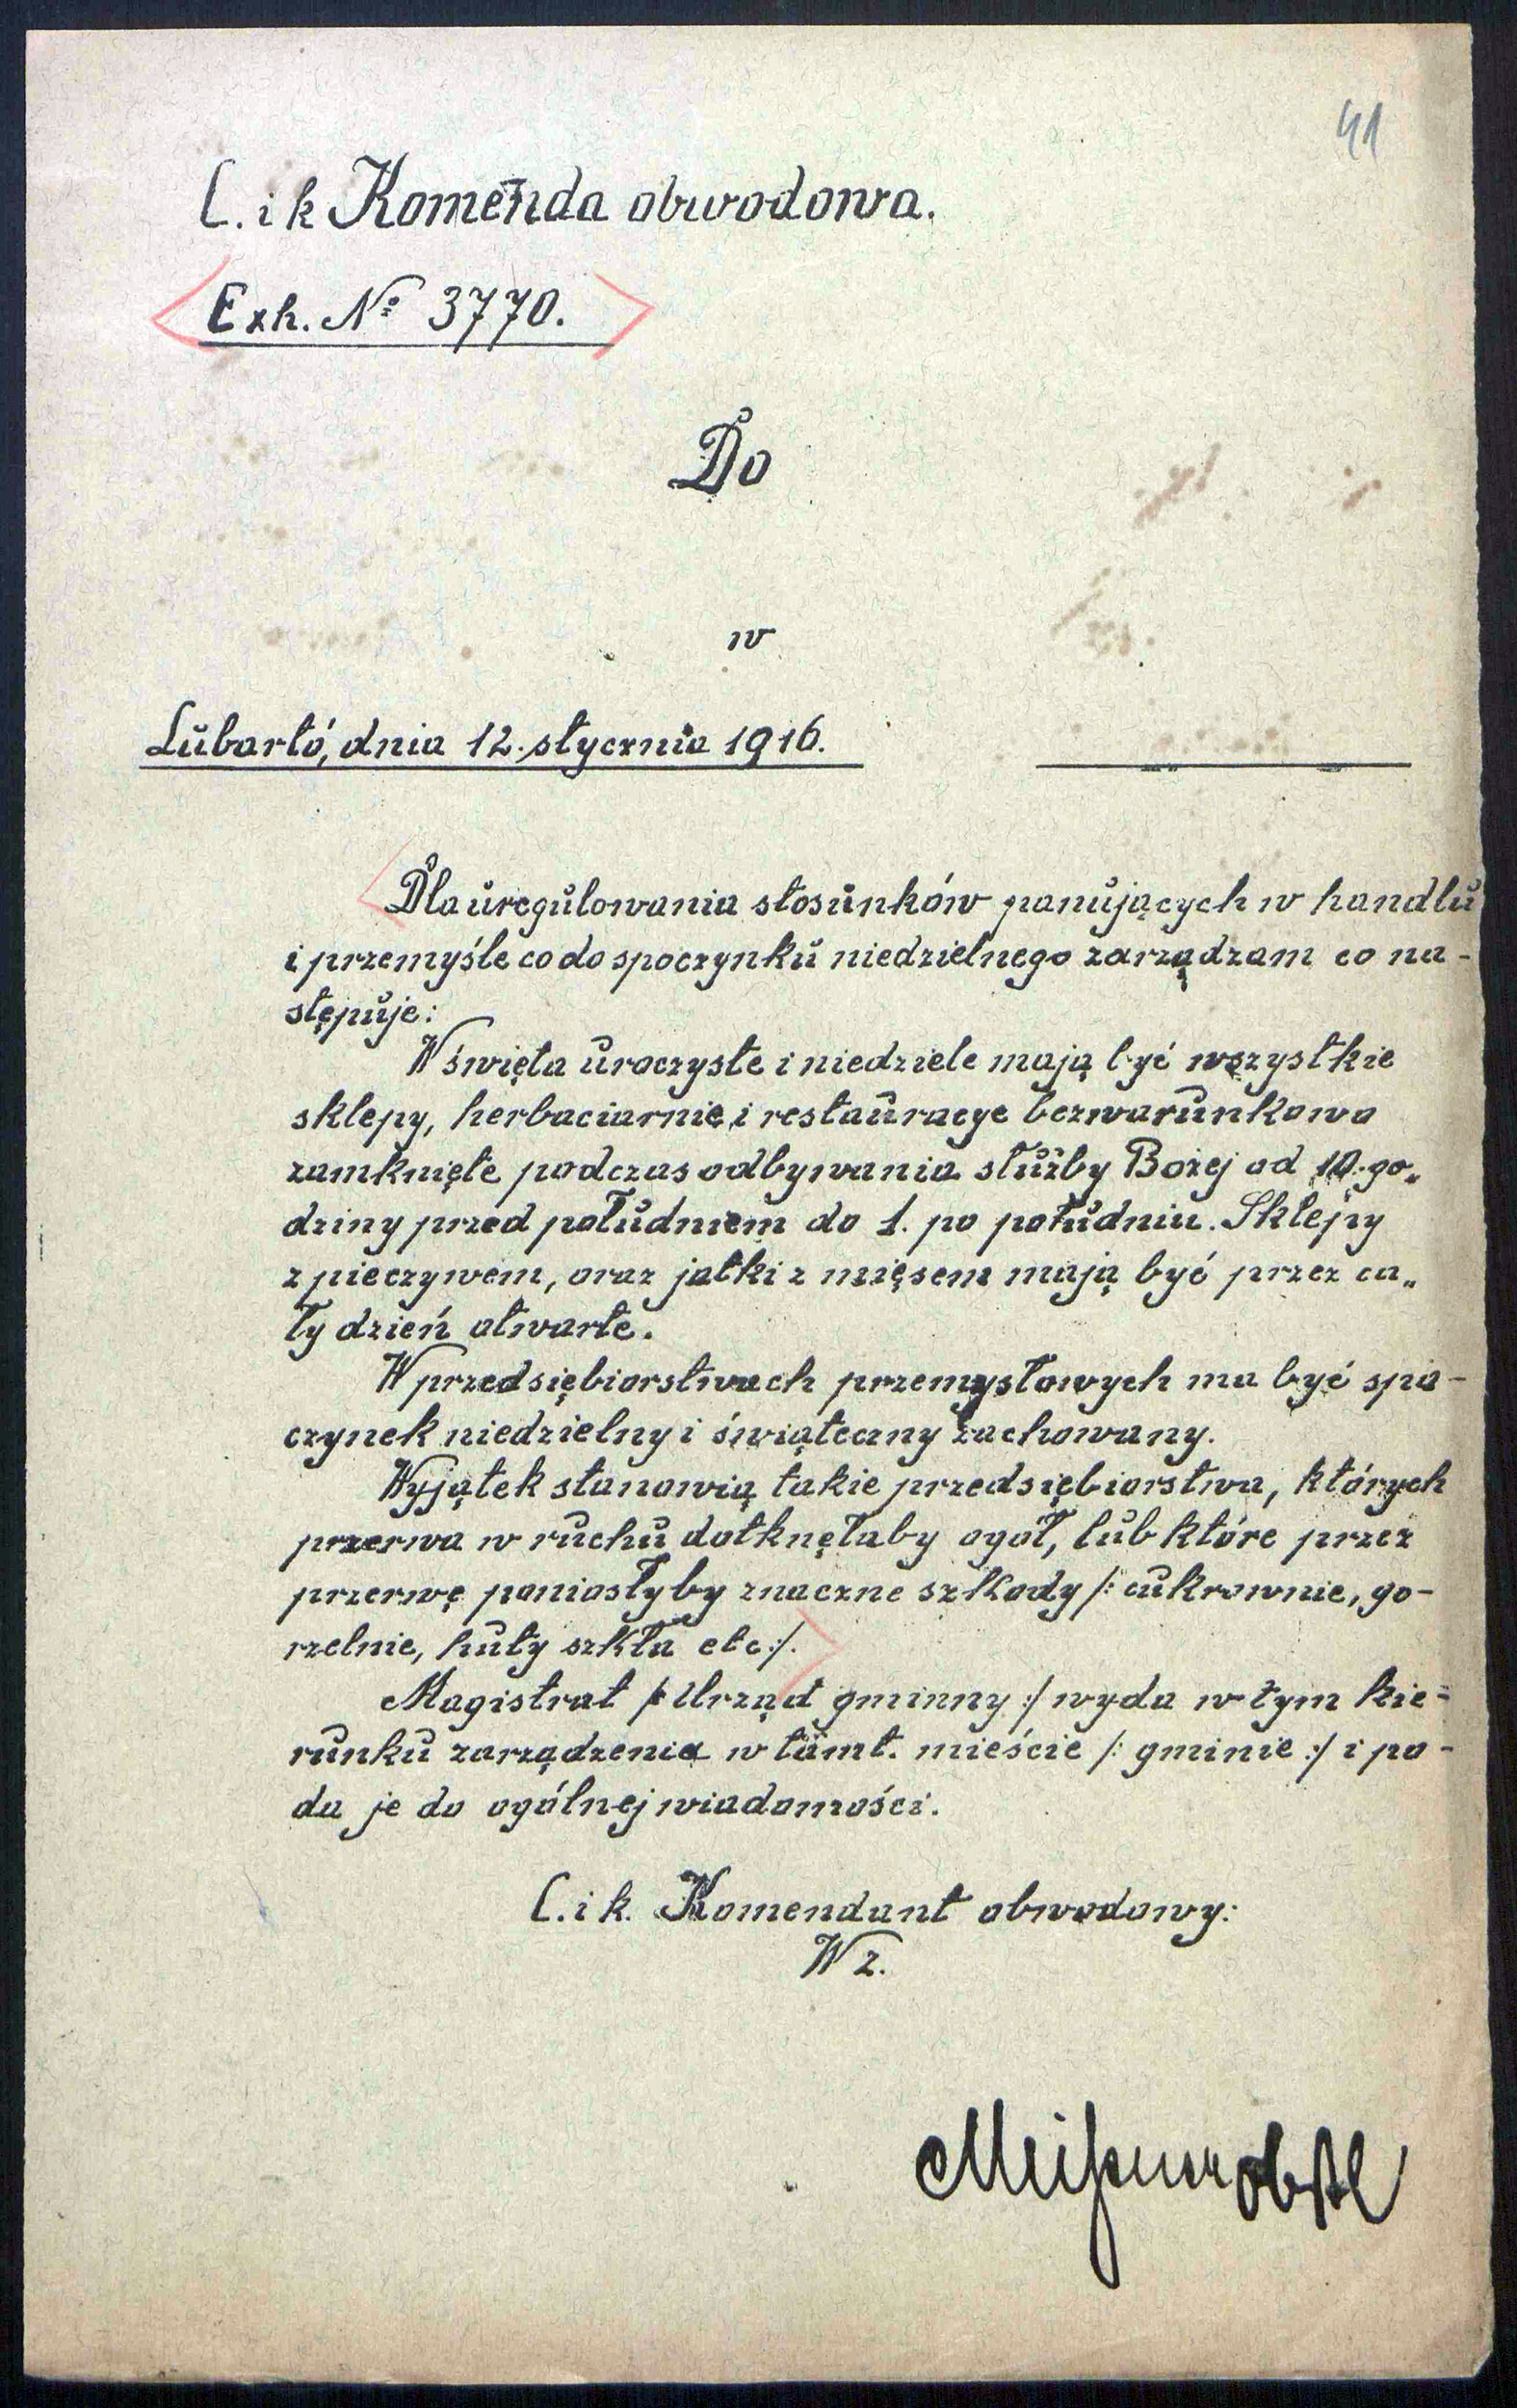 41
C. i k Komenda obwodowa.
Exh. No 3770.
Do
w
Lubartó, dnia 12. stycznia 1916.
Dla uregulowania stosunków panujących w handlu
i przemyśle co do spoczynku niedzielnego zarządzam co na-
stępuje:
W święta uroczyste i niedziele mają być wszystkie
sklepy, herbaciarnie i restauracye bezwarunkowo
zamknięte podczas odbywania służby Bożej od 10. go„
dziny przed południem do 1. po południu. Sklepy
z pieczywem, oraz jatki z mięsem mają być przez ca„
ły dzień otwarte.
W przedsiębiorstwach przemysłowych ma być spo-
czynek niedzielny i świąteczny zachowany.
Wyjątek stanowią takie przedsiębiorstwa, których
przerwa w ruchu dotknęłaby ogół, lub które przez
przerwę poniosłyby znaczne szkody /: cukrownie, go-
rzelnie, huty szkła etc :/.
Magistrat /: Urząd gminny :/ wyda w tym kie=
runku zarządzenia w tamt. mieście /: gminie :/ i po-
da je do ogólnej wiadomości.
C. i k. Komendant obwodowy:
W z.